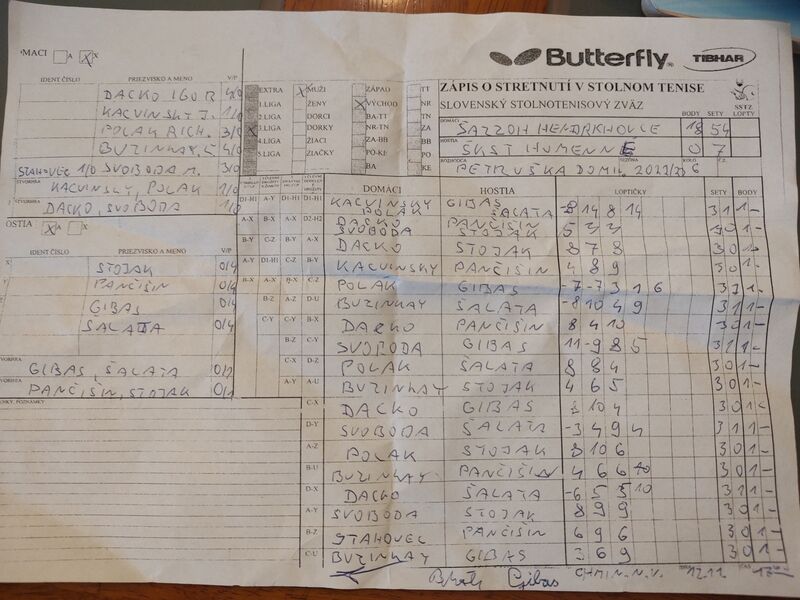 Butterfly
TIBHAR
ZÁPIS O STRETNUTÍ V STOLNOM TENISE
SLOVENSKÝ STOLNOTENISOVÝ ZVÄZ
SSTZ
BODY SETY LOPTY
DOMÁCI
ŠAZZOH HENDRIKHOVCE 18 54
HOSTIA
ŠKST HUMENNÉ 0 7
ROZHODCA
PETRUŠKA DOMIL. 2022/23 6
A X
IDENT ČÍSLO PRIEZVISKO A MENO V/P
DACKO IGOR 4/0
KACVINSKÝ J. 1/0
POLÁK RICH. 3/0
BUZINKAY 4/0
STAHOVEC 1/0 SVOBODA M. 3/0
KACVINSKY, POLAK 1/0
DACKO, SVOBODA 1/0
A X
IDENT ČÍSLO PRIEZVISKO A MENO V/P
STOJAK 0/4
PANČIŠIN 0/4
GIBAS 0/4
ŠALATA 0/4
GIBAS, ŠALATA 0/1
PANČIŠIN, STOJAK 0/1
EXTRA MUŽI ZÁPAD TT
1.LIGA ŽENY VÝCHOD NR
2.LIGA DORCI BA-TT TN
3.LIGA DORKY NR-TN ZA
4.LIGA ŽIACI ZA-BB BB
5.LIGA ŽIAČKY PO-KE
BA KE
DOMÁCI HOSTIA LOPTIČKY SETY BODY
D1-H1 A-Y D1-H1 D1-H1 KACVINSKY POLAK GIBAS ŠALATA -8 14 8 14 3 1 1 -
A-X B-X A-X D2-H2 DACKO SVOBODA PANČIŠIN STOJAK 5 3 3 3 0 1 -
B-Y C-Z B-Y A-X DACKO STOJAK 8 7 8 3 0 1 -
A-Y D1-H1 C-Z B-Y KACVINSKY PANČIŠIN 4 8 9 3 0 1 -
B-X A-X B-X C-Z POLÁK GIBAS -7 -7 3 1 6 3 2 1 -
B-Z A-Z D-U BUZINKAY ŠALATA -8 10 4 9 3 1 1 -
C-Y C-Y B-X DACKO PANČIŠIN 8 4 10 3 0 1 -
B-Z C-Y SVOBODA GIBAS 11 -9 8 5 3 1 1 -
C-X D-Z POLAK ŠALATA 8 8 4 3 0 1 -
A-Y A-U BUZINKAY STOJAK 4 6 5 3 0 1 -
C-X DACKO GIBAS 3 10 4 3 0 1 -
D-Y SVOBODA ŠALATA -3 4 9 4 3 1 1 -
A-Z POLAK STOJAK 8 10 6 3 0 1 -
B-U BUZINKAY PANČIŠIN 4 6 6 3 0 1 -
D-X DACKO ŠALATA -6 5 5 10 3 1 1 -
A-Y SVOBODA STOJAK 8 9 9 3 0 1 -
B-Z STAHOVEC PANČIŠIN 6 9 6 3 0 1 -
C-U BUZINKAY GIBAS 3 6 9 3 0 1 -
Gibas CHMIN. N. V. 12.11.